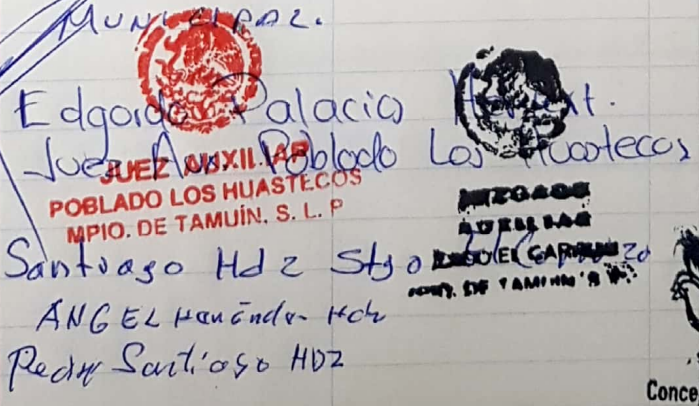 MUNICIPAL.
Edgardo Palacio
Juez Aux. Poblado Los Huastecos
JUEZ AUXILIAR
POBLADO LOS HUASTECOS
MPIO. DE TAMUÍN, S. L. P
JUZGADO
AUXILIAR
MPIO. DE TAMUIN S
Santiago Hdz Stgo
ANGEL
Santiago HDZ
Conce